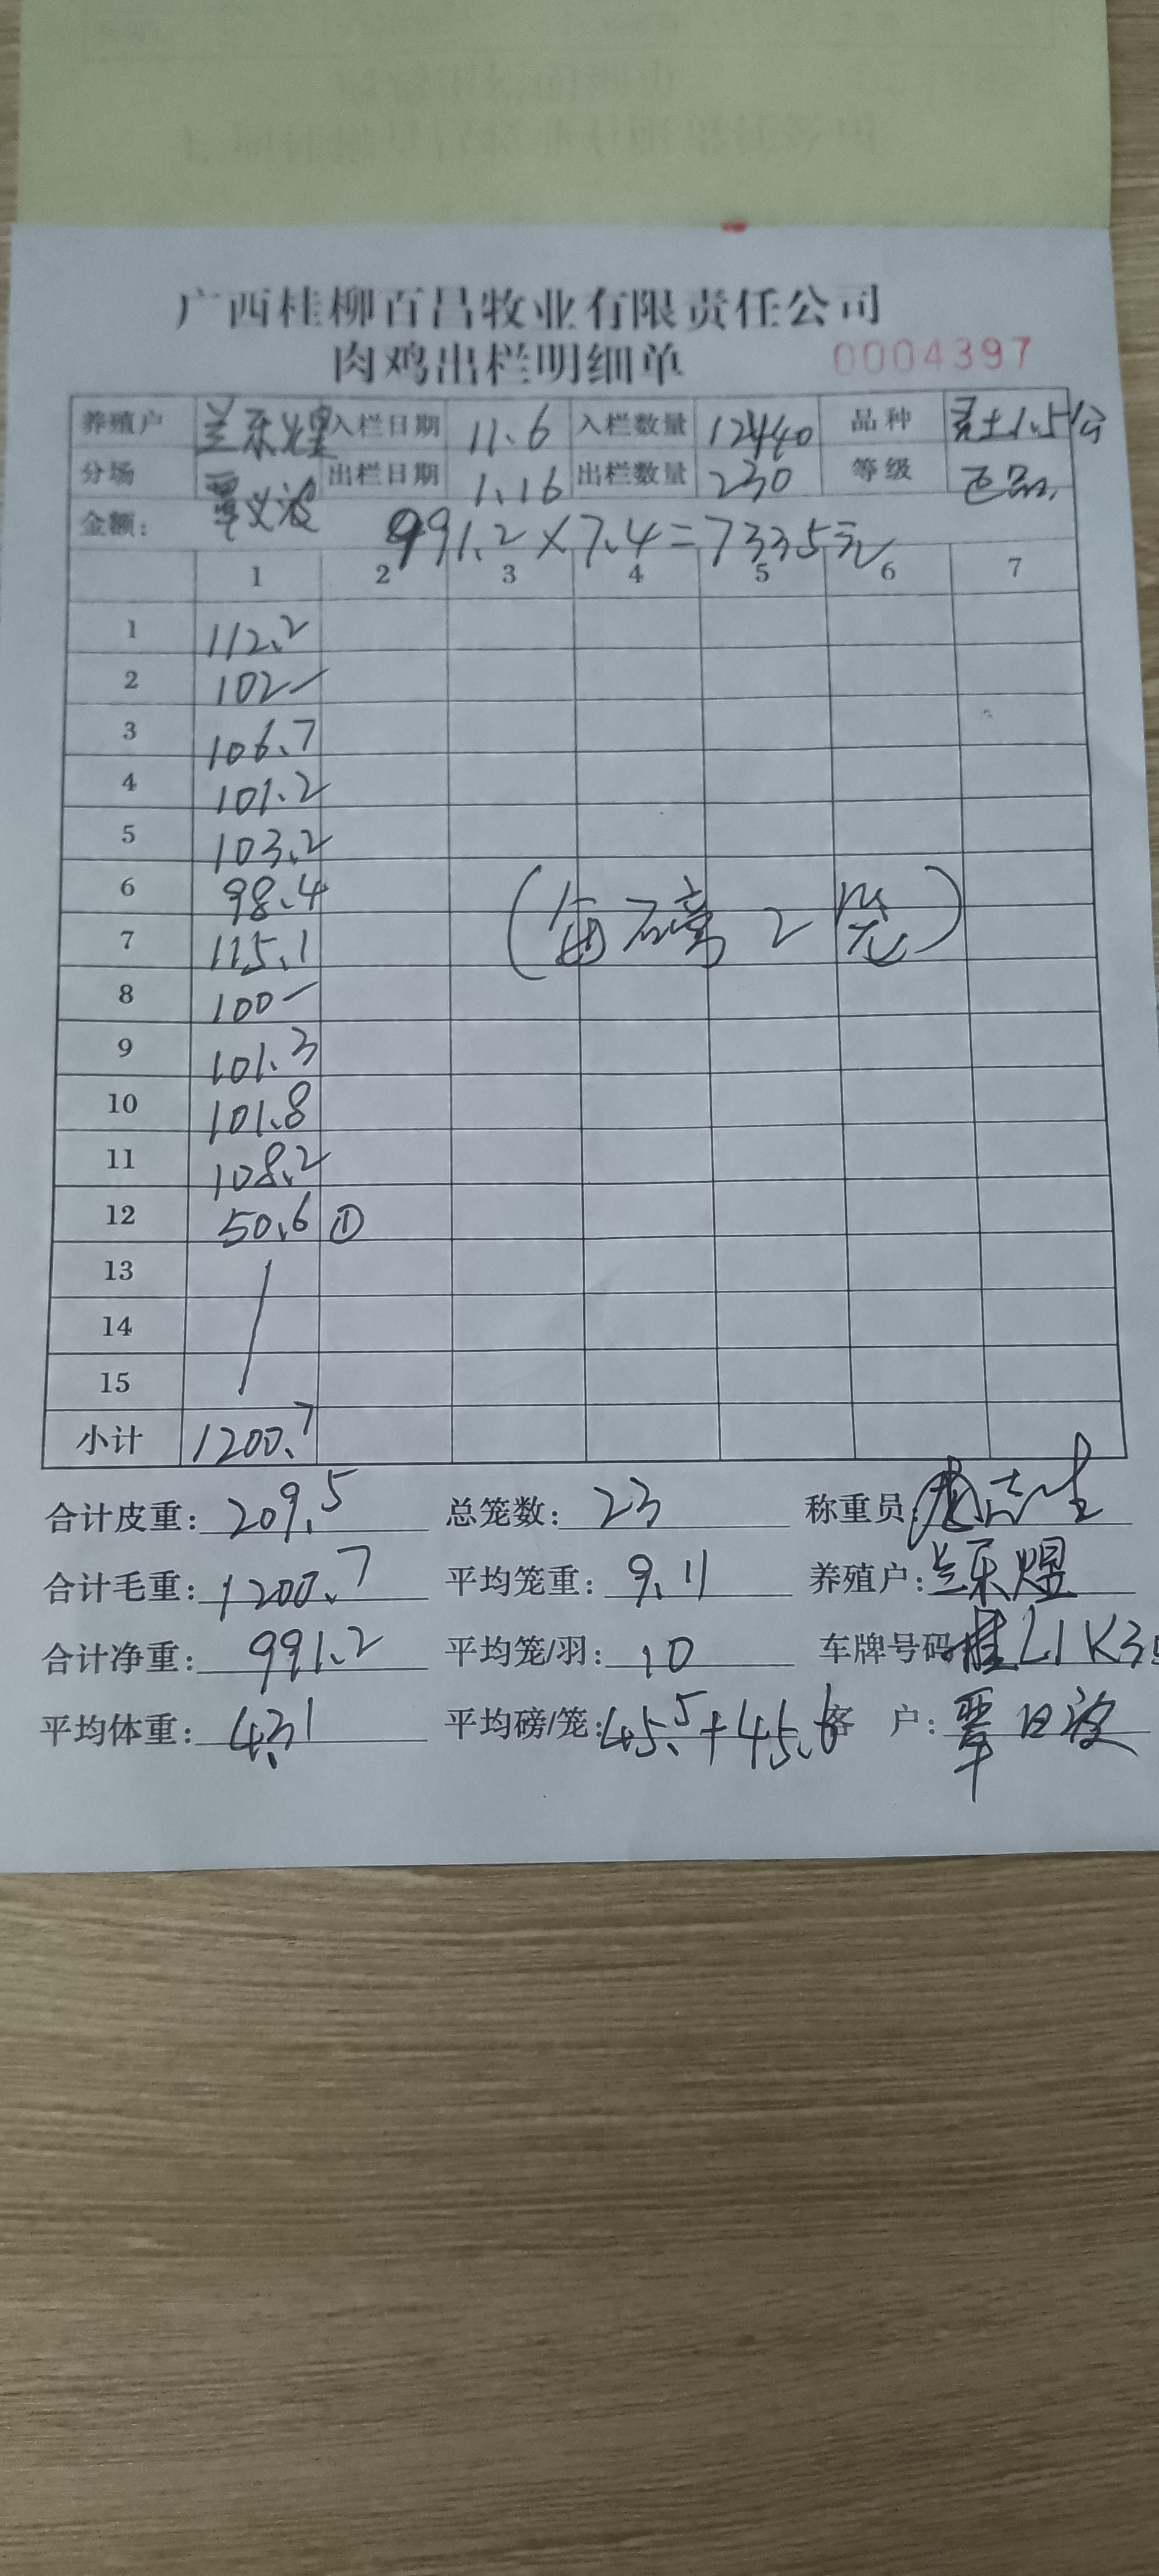 广西桂柳百昌牧业有限责任公司
肉鸡出栏明细单 0004397
养殖户 兰乐煜 入栏日期 11.6 入栏数量 12440 品种 土1.5公
分场 覃义波 出栏日期 1.16 出栏数量 230 等级 正品
金额: 991.2×7.4=7335元
1 2 3 4 5 6 7
1 112.2
2 102-
3 106.7
4 101.2
5 103.2
6 98.4
7 115.1
(每磅2笼)
8 100-
9 101.3
10 101.8
11 108.2
12 50.6 ①
13
14
15
小计 1200.7
合计皮重: 209.5 总笼数: 23 称重员:
合计毛重: 1200.7 平均笼重: 9.11 养殖户: 兰乐煜
合计净重: 991.2 平均笼/羽: 10 车牌号码 桂L1K3
平均体重: 4.31 平均磅/笼: 45.5+45.6 客 户: 覃日波